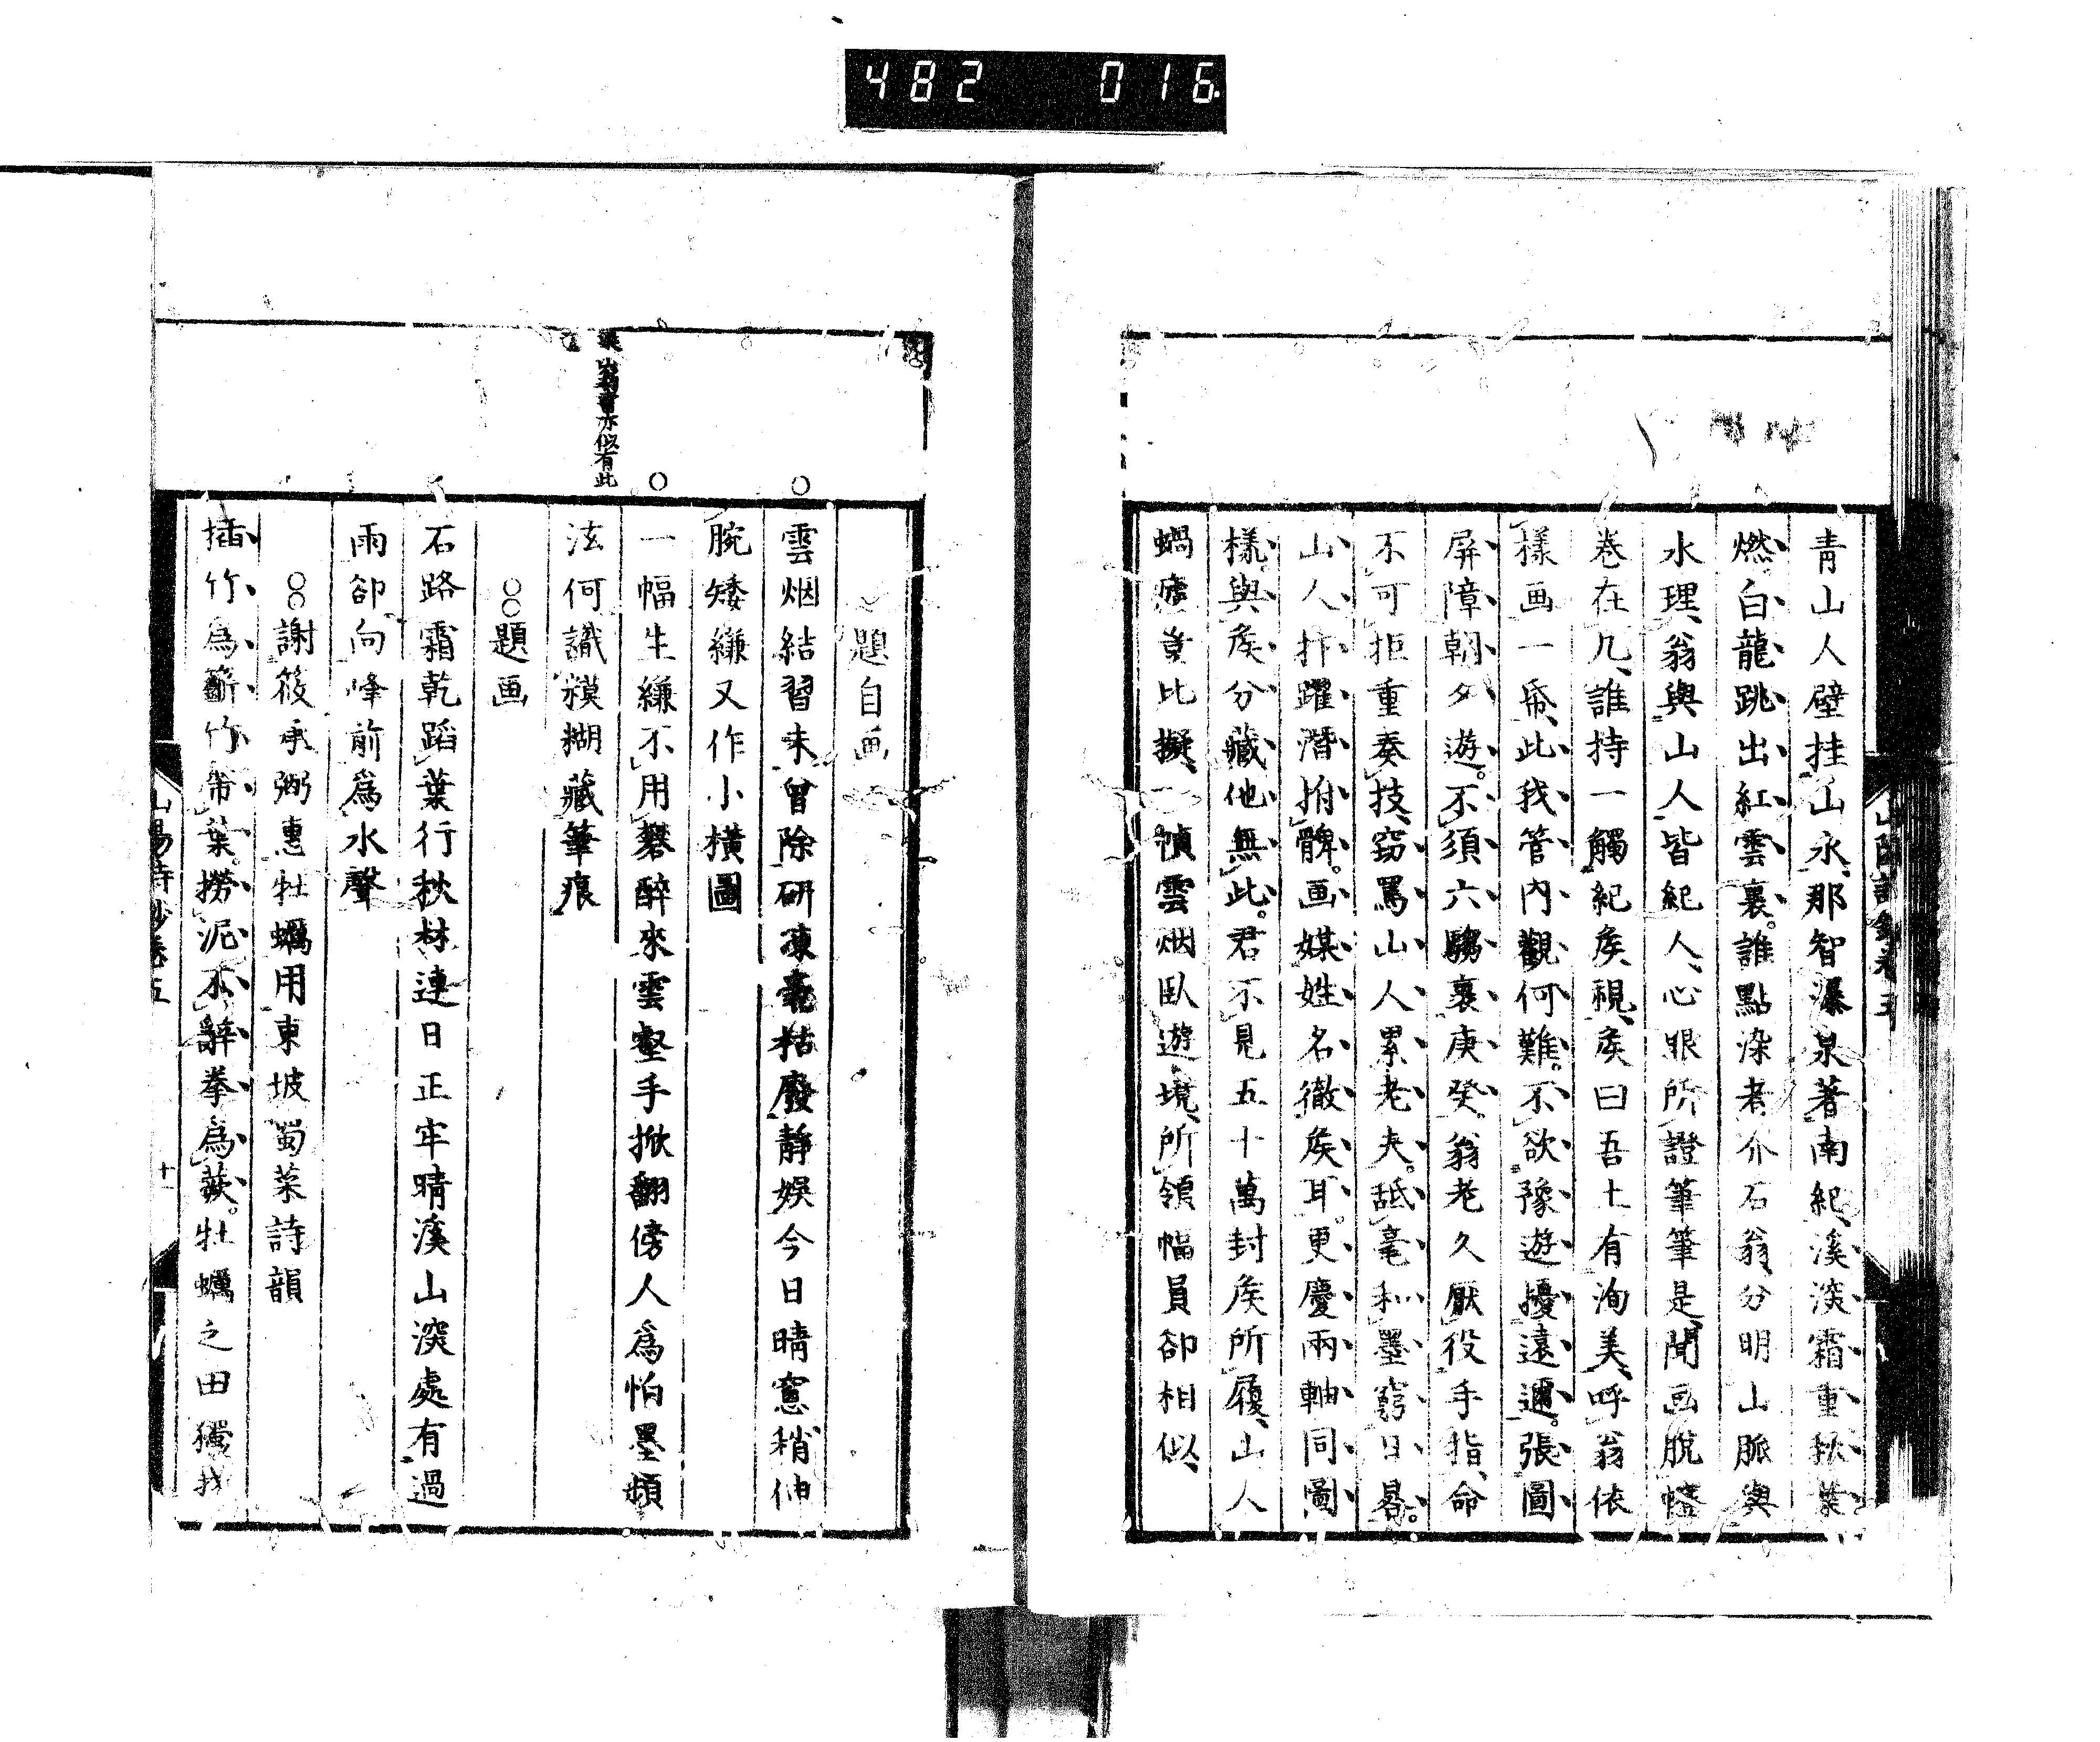 482 016
青山人壁挂山水、那智瀑泉著南紀、溪深霜重秋葉
燃。白龍跳出紅雲裏。誰點染者介石翁、分明山脈與
水理、翁與山人皆紀人、心眼所證筆筆是、聞画脫
卷在几、誰持一觸紀矦視、矦曰吾土有洵美、呼翁依
樣画一帋、此我管內觀何難。不欲豫遊擾遠邇。張圖
屏障朝夕遊。不須六騶裹庚癸、翁老久厭役手指、命
不可拒重奏技、窈罵山人累老夫。舐毫和墨窮日晷。
山人抃躍潛拊髀。画媒姓名徹矦耳。更慶兩軸同圖
樣、與矦分藏他無此。君不見五十萬封矦所履、山人
蝸廬豈比擬、一幀雲烟臥遊境、所領幅員卻相似、
山陽詩鈔卷五
題自画
雲烟結習未曾除研凍毫枯廢靜娛今日晴窻稍伸
腕矮縑又作小橫圖
一幅生縑不用礬醉來雲壑手掀翻傍人為怕墨頻
泫何識糢糊藏筆痕
翁書亦似有此
題画
石路霜乾蹈葉行秋林連日正牢晴溪山深處有過
雨卻向峰前為水聲
謝筱承弼惠牡蠣用東坡蜀菜詩韻
插竹為籪竹帶葉。撈泥不辭拳為蕨。牡蠣之田
山陽詩鈔卷五 十一